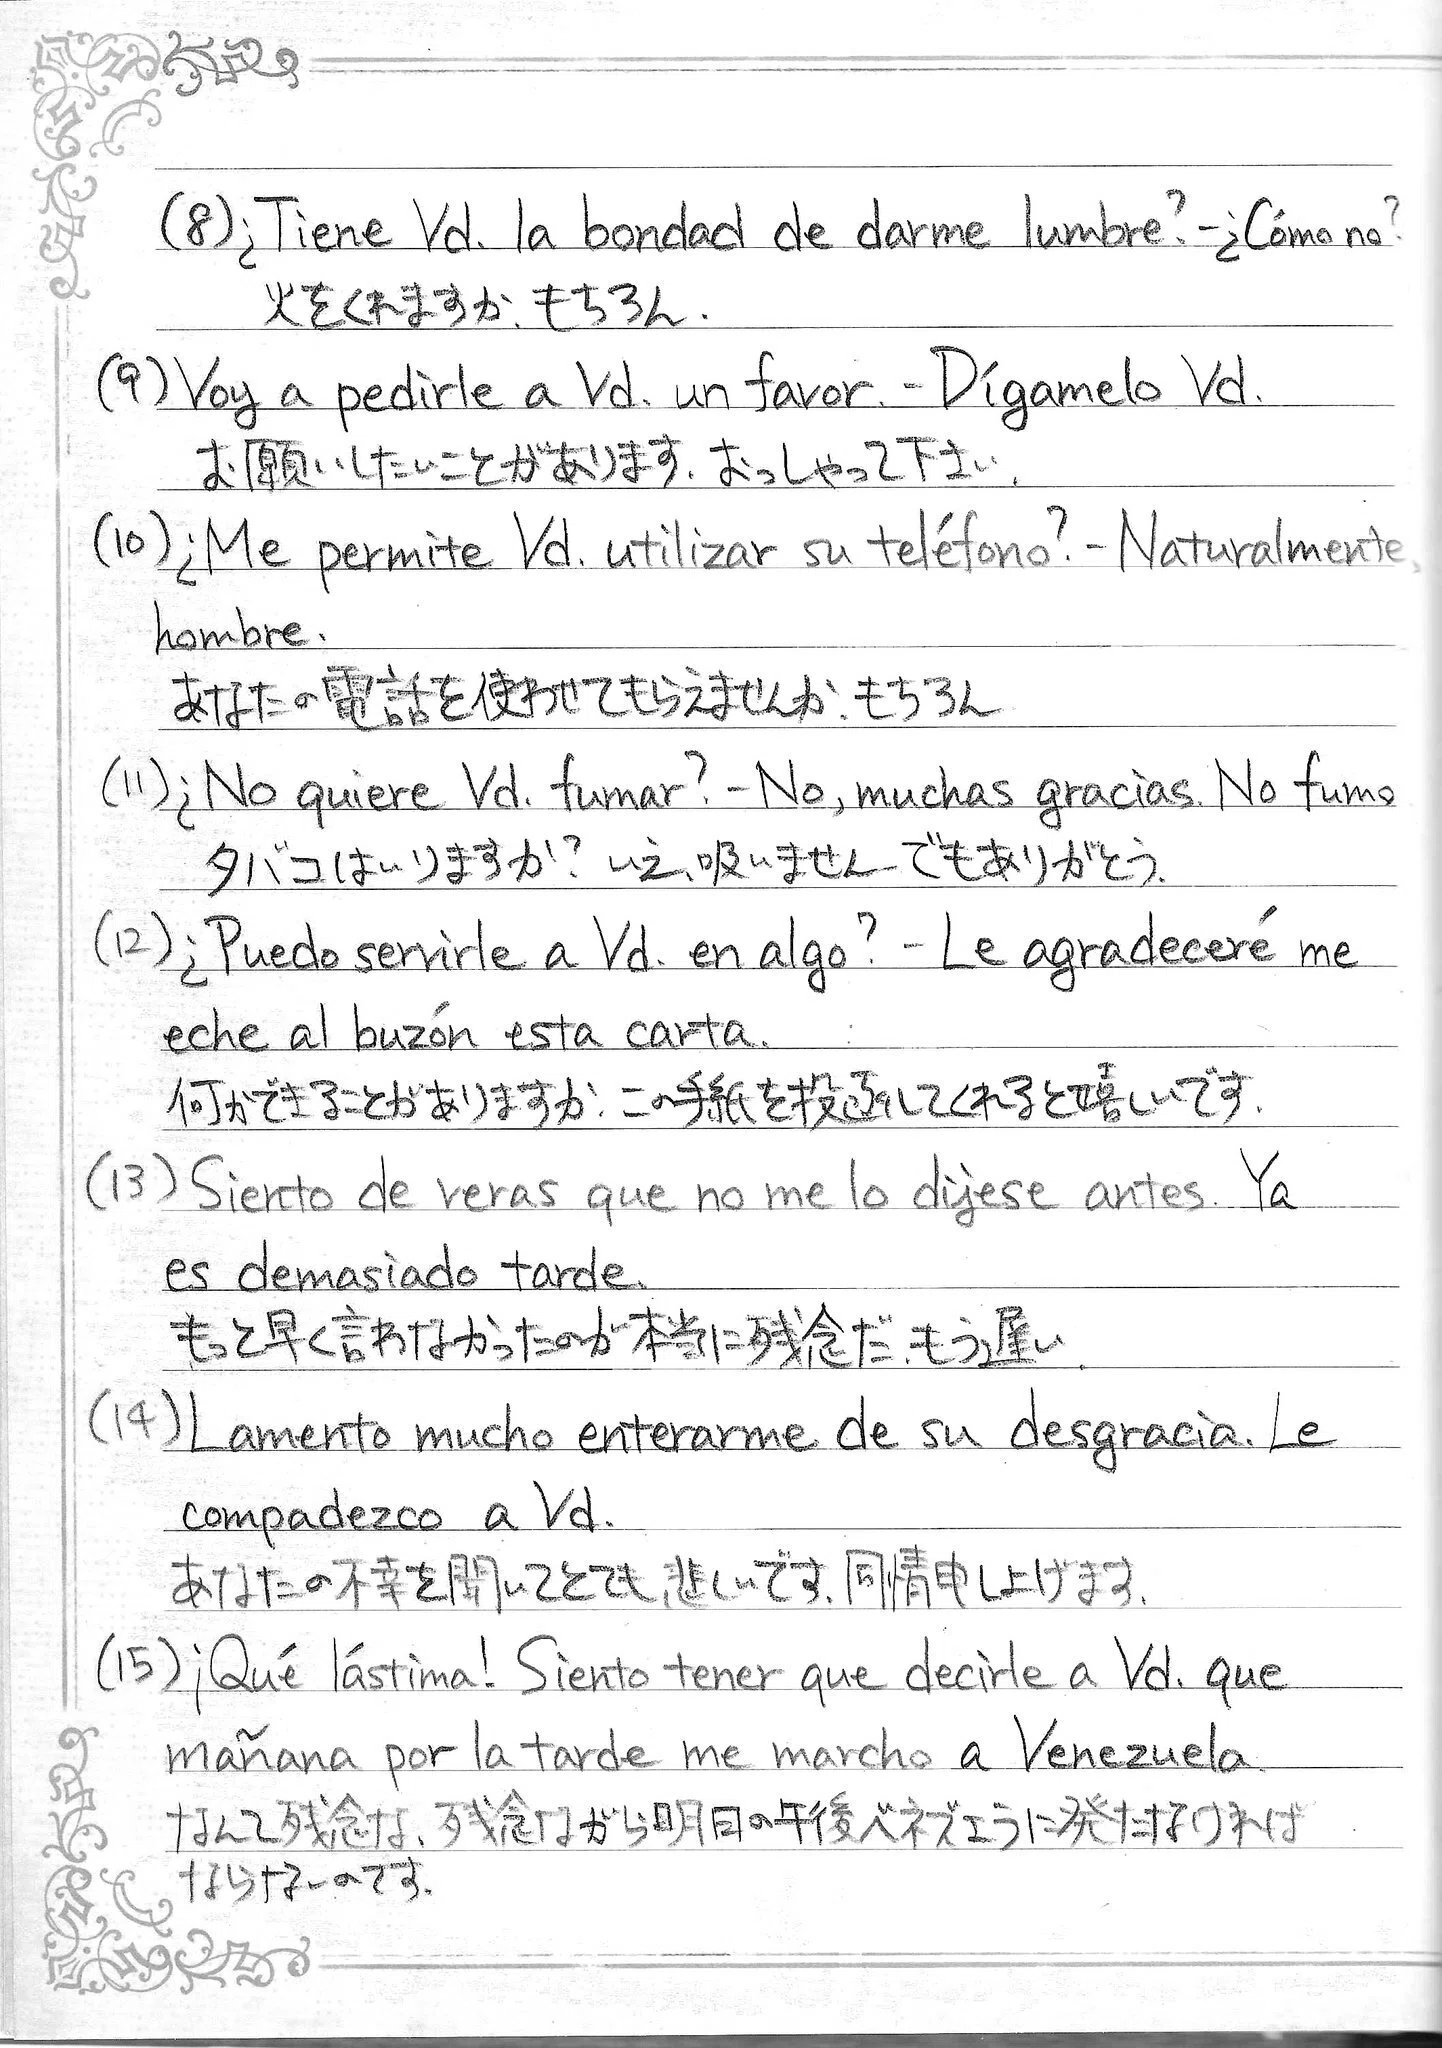 (8)¿Tiene Vd. la bondad de darme lumbre?-¿Cómo no?
火をくれますか、もちろん.
(9)Voy a pedirle a Vd. un favor.-Dígamelo Vd.
お願いしたいことがあります.おっしゃって下さい.
(10)¿Me permite Vd. utilizar su teléfono?-Naturalmente,
hombre.
あなたの電話を使わせてもらえませんか、もちろん
(11)¿No quiere Vd. fumar?-No, muchas gracias. No fumo
タバコはいりますか?いえ、吸いませんでもありがとう.
(12)¿Puedo servirle a Vd. en algo?-Le agradeceré me
eche al buzón esta carta.
何かできることがありますか.この手紙を投函してくれると嬉しいです.
(13)Siento de veras que no me lo dijese antes. Ya
es demasiado tarde.
もっと早く言わなかったのが本当に残念だ.もう遅い.
(14)Lamento mucho enterarme de su desgracia. Le
compadezco a Vd.
あなたの不幸を聞いてとても悲しいです.同情申し上げます.
(15)¡Qué lástima! Siento tener que decirle a Vd. que
mañana por la tarde me marcho a Venezuela.
なんて残念な.残念ながら明日の午後ベネズエラに発たなければ
ならないのです.